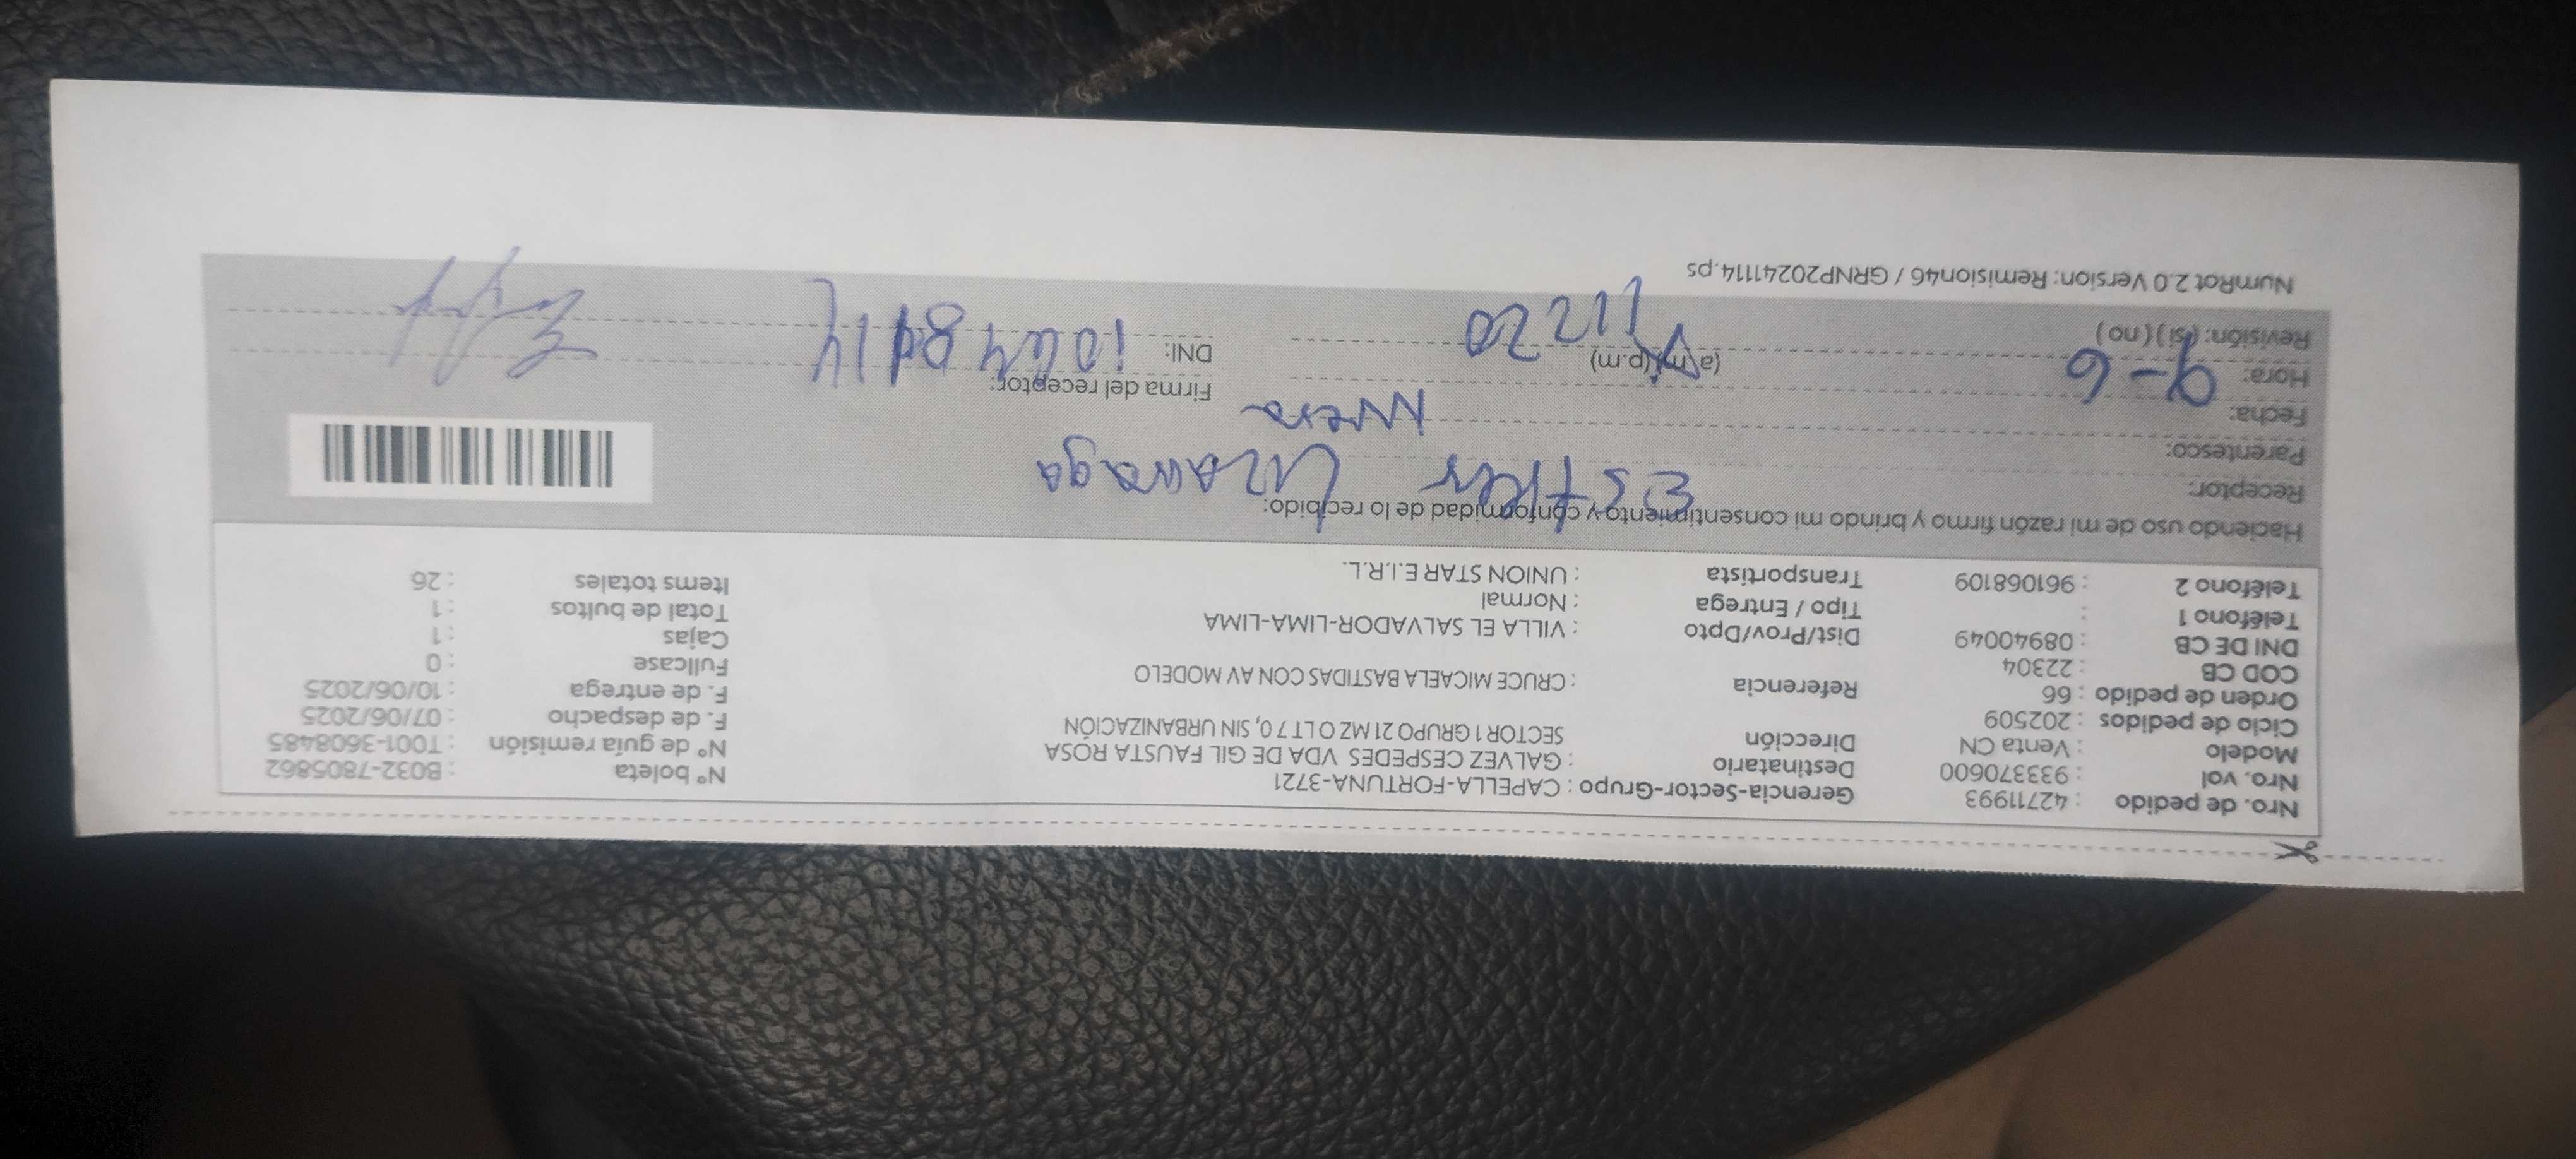 Nro. de pedido : 42711993
Nro. vol : 933370600
Modelo : Venta CN
Ciclo de pedidos : 202509
Orden de pedido : 66
COD CB : 22304
DNI DE CB : 08940049
Teléfono 1 :
Teléfono 2 : 961068109
Gerencia-Sector-Grupo : CAPELLA-FORTUNA-3721
Destinatario : GALVEZ CESPEDES VDA DE GIL FAUSTA ROSA
Dirección SECTOR 1 GRUPO 21 MZ O LT 7 0, SIN URBANIZACIÓN
Referencia : CRUCE MICAELA BASTIDAS CON AV MODELO
Dist/Prov/Dpto : VILLA EL SALVADOR-LIMA-LIMA
Tipo / Entrega : Normal
Transportista : UNION STAR E.I.R.L.
Nº boleta : B032-7805862
Nº de guía remisión : T001-3608485
F. de despacho : 07/06/2025
F. de entrega : 10/06/2025
Fullcase : 0
Cajas : 1
Total de bultos : 1
Items totales : 26
Haciendo uso de mi razón firmo y brindo mi consentimiento y conformidad de lo recibido:
Receptor: Esther Lizarraga
Parentesco: Nuera
Fecha: 9-6
Hora: (a.m) (p.m) 1220
Revisión: (si) (no)
Firma del receptor:
DNI:
NumRot 2.0 Version: Remision46 / GRNP20241114.ps